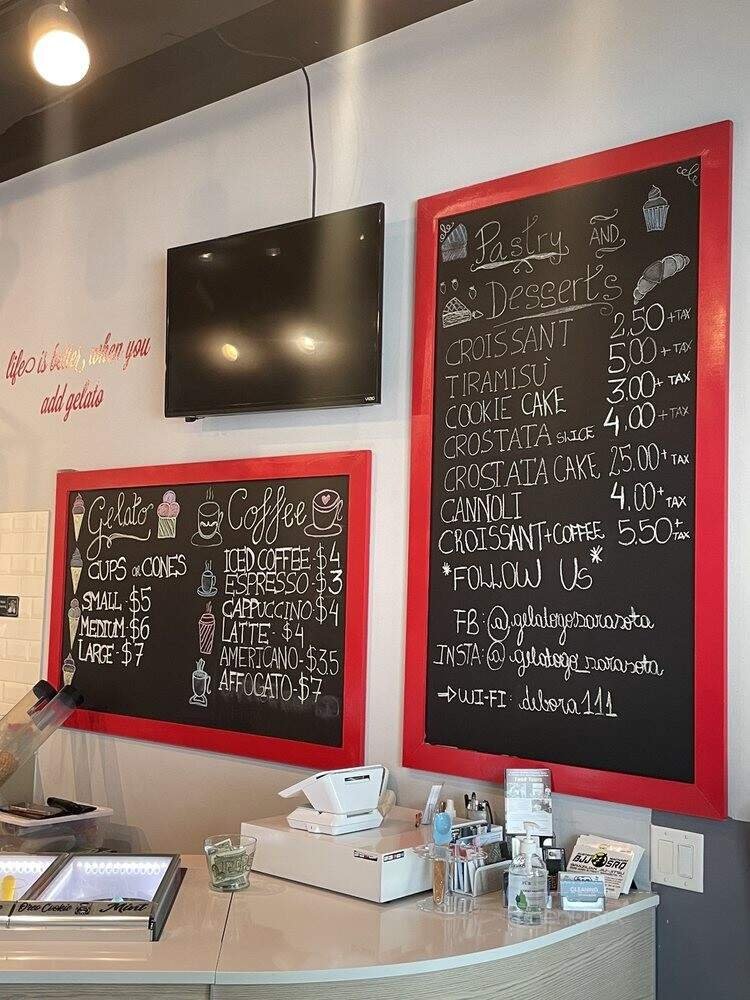 life is better, when you
add gelato
VIZIO
Gelato
CUPS or CONES
SMALL - $5
MEDIUM - $6
LARGE - $7
Coffee
ICED COFFEE - $4
ESPRESSO - $3
CAPPUCCINO - $4
LATTE - $4
AMERICANO - $3.5
AFFOGATO - $7
Pastry AND
Desserts
CROISSANT 2.50 + TAX
TIRAMISÙ 5,00 + TAX
COOKIE CAKE 3.00 + TAX
CROSTATA SLICE 4.00 + TAX
CROSTATA CAKE 25.00 + TAX
CANNOLI 4.00 + TAX
CROISSANT + COFFEE 5.50 + TAX
*FOLLOW US*
FB: @gelatogosarasota
INSTA: @gelatogo_sarasota
→ WI-FI: debora111
Food Tours
BJJ SRQ
CLEANING
Oreo Cookie
Mint